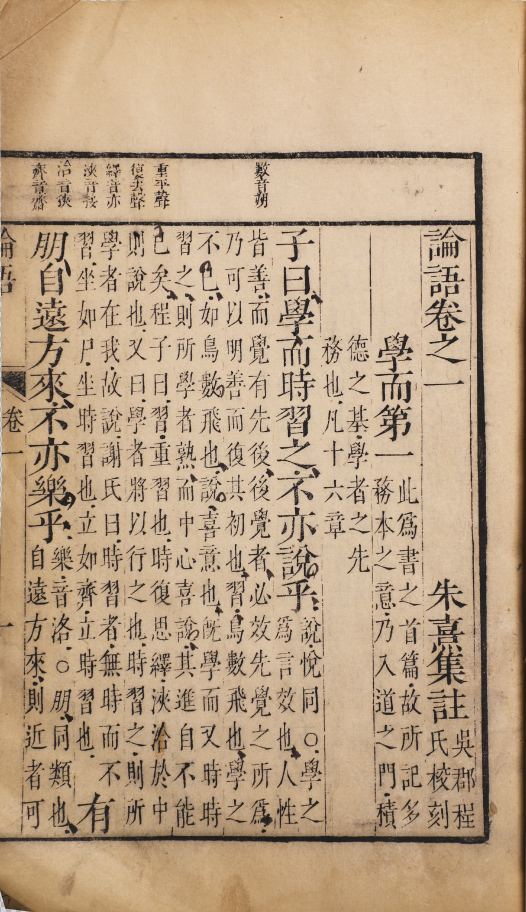 數音朔
重平聲
復去聲
繹音亦
浹音接
洽音狹
齊音齋
論語卷之一
朱熹集註
吳郡程
氏棱刻
學而第一
此爲書之首篇故所記多
務本之意乃入道之門積
德之基學者之先
務也凡十六章
子曰學而時習之不亦說乎
說悅同○學之
爲言效也人性
皆善而覺有先後後覺者必效先覺之所爲
乃可以明善而復其初也習鳥數飛也學之
不已如鳥數飛也說喜意也旣學而又時時
習之則所學者熟而中心喜說其進自不能
已矣程子曰習重習也時復思繹浹洽於中
則說也又曰學者將以行之也時習之則所
學者在我故說謝氏曰時習者無時而不
習坐如尸坐時習也立如齊立時習也
有
朋自遠方來不亦樂乎
樂音洛○朋同類也
自遠方來則近者可
論語
卷一
一